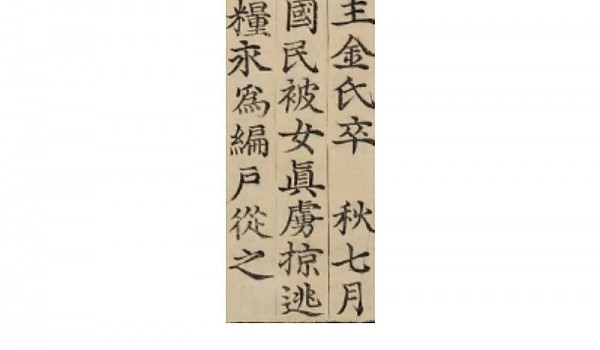 主金氏卒 秋七月
國民被女眞虜掠逃
糧永爲編戸從之